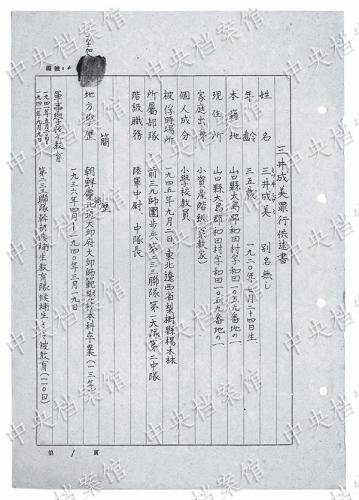 編號
三井成美罪行供述書
姓名 三井成美 別名無し
年齢 三五歳 一九二〇年七月二十四日生
本籍地 山口縣大島郡和田村字和田一〇五九番地の一
現住所 山口縣大島郡和田村字和田一〇五九番地の一
家庭出身 小資産階級(宗教家)
個人成分 小學校教員
被俘時場所 一九四五年九月二日、東北遼西省梨樹縣楊木林
所屬部隊 前三九師團步兵第二三三聯隊第一大隊第二中隊
階級職務 陸軍中尉 中隊長
簡歴
地方学歴 朝鮮慶北道大邱府大邱師範 本科卒業(一三年)
一九三六年四月ー一九四〇年三月一九日
軍事學校 教育
第二三三聯隊幹部候補生教育隊候補生 教育(二〇日)
第 1 頁
中央档案馆